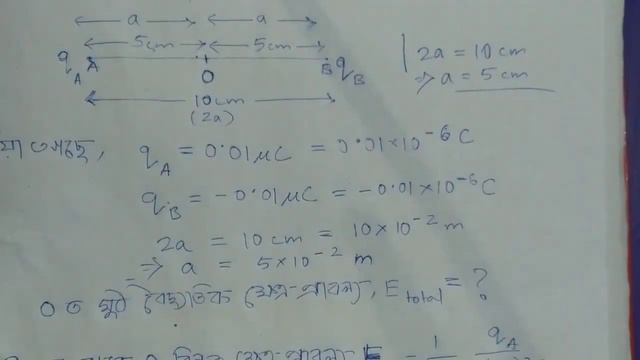 a a
5cm 5cm
q_A A O B q_B
10cm
(2a)
2a = 10 cm
⇒ a = 5 cm
q_A = 0.01 μC = 0.01×10⁻⁶ C
q_B = -0.01 μC = -0.01×10⁻⁶ C
2a = 10 cm = 10×10⁻² m
⇒ a = 5×10⁻² m
O ত মুঠ বৈদ্যুতিক ক্ষেত্ৰ-প্ৰাবল্য, E_total = ?
O ক্ষেত্ৰ-প্ৰাবল্য E = 1 q_A